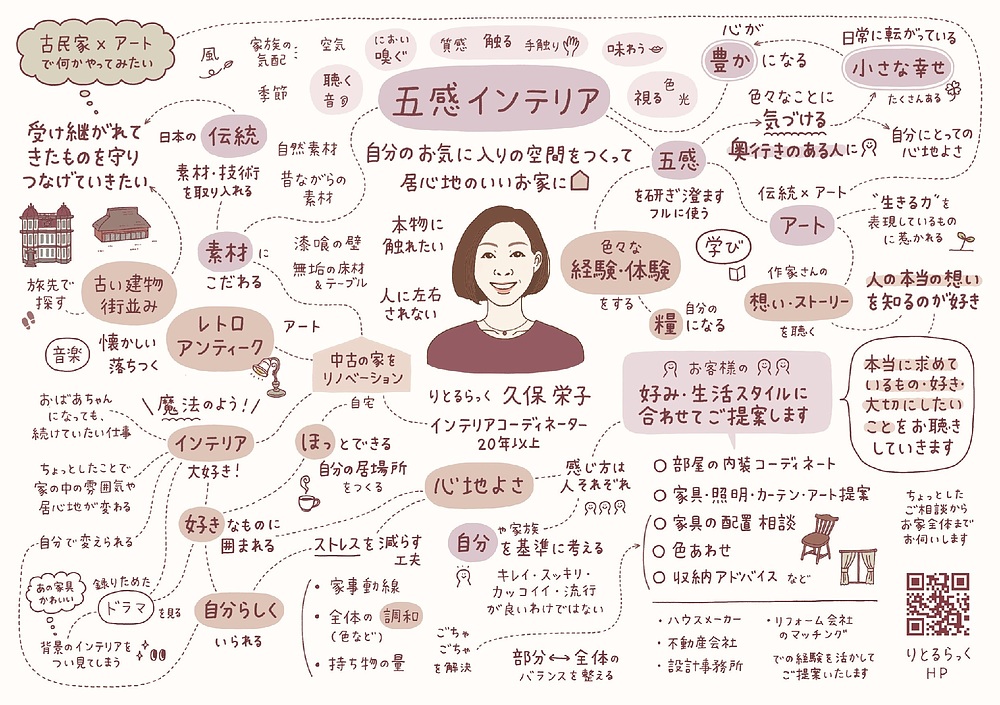 古民家 × アート
で何かやってみたい
風
家族の
気配
:
空気
季節
におい
嗅ぐ
聴く
音
質感
触る
手触り
味わう
視る
色
光
五感インテリア
自分のお気に入りの空間をつくって
居心地のいいお家に
心が
豊か
になる
日常に転がっている
小さな幸せ
たくさんある
色々なことに
気づける
奥行きのある人に
自分にとっての
心地よさ
五感
を研ぎ澄ます
フルに使う
受け継がれて
きたものを守り
つなげていきたい
日本の
伝統
素材・技術
を取り入れる
自然素材
昔ながらの
素材
素材
に
こだわる
漆喰の壁
無垢の床材
&テーブル
本物に
触れたい
人に左右
されない
色々な
経験・体験
をする
学び
糧
自分の
になる
伝統×アート
アート
"生きる力"を
表現しているもの
に惹かれる
作家さんの
想い・ストーリー
を聴く
人の本当の想い
を知るのが好き
旅先で
探す
古い建物
街並み
レトロ
アンティーク
アート
音楽
懐かしい
落ちつく
中古の家を
リノベーション
自宅
りとるらっく 久保 栄子
インテリアコーディネーター
20年以上
お客様の
好み・生活スタイルに
合わせてご提案します
本当に求めて
いるもの・好き・
大切にしたい
ことをお聴き
していきます
おばあちゃん
になっても、
続けていたい仕事
\魔法のよう!/
インテリア
大好き!
ほっ
とできる
自分の居場所
をつくる
ちょっとしたことで
家の中の雰囲気や
居心地が変わる
心地よさ
感じ方は
人それぞれ
部屋の内装コーディネート
家具・照明・カーテン・アート提案
家具の配置 相談
色あわせ
収納アドバイス など
ちょっとした
ご相談から
お家全体まで
お伺いします
好き
なものに
囲まれる
自分で変えられる
ストレスを減らす
工夫
自分
や家族
を基準に考える
キレイ・スッキリ・
カッコイイ・流行
が良いわけではない
あの家具
かわいい
録りためた
ドラマ
を見る
背景のインテリアを
つい見てしまう
自分らしく
いられる
・家事動線
・全体の 調和
(色など)
・持ち物の量
ごちゃ
ごちゃ
を解決
部分↔全体の
バランスを整える
・ハウスメーカー
・不動産会社
・設計事務所
・リフォーム会社
のマッチング
での経験を活かして
ご提案いたします
りとるらっく
HP